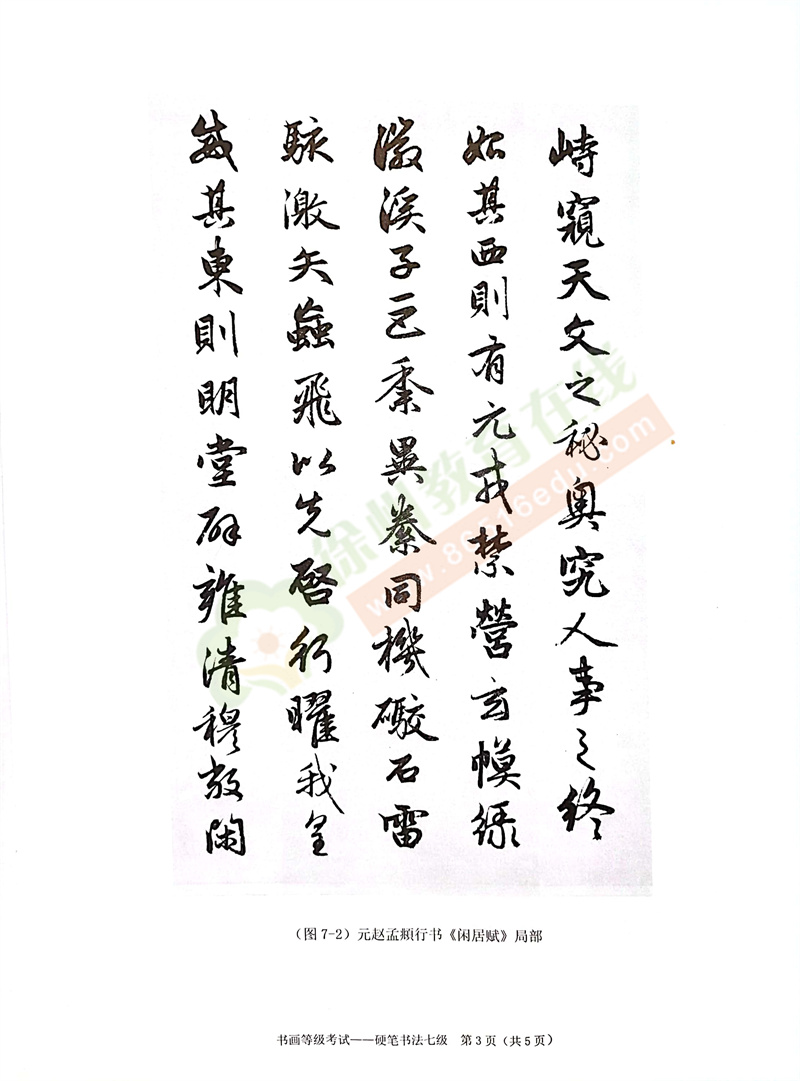 峙窺天文之秘奥究人事之終
始其西則有元戎禁營玄幙緑
徽溪子巨黍異絭同機礮石雷
駭激矢蝱飛以先啓行曜我皇
威其東則明堂辟雍清穆敞閑
徐州教育在线
www.868516edu.com
（图7-2）元赵孟頫行书《闲居赋》局部
书画等级考试——硬笔书法七级 第3页（共5页）